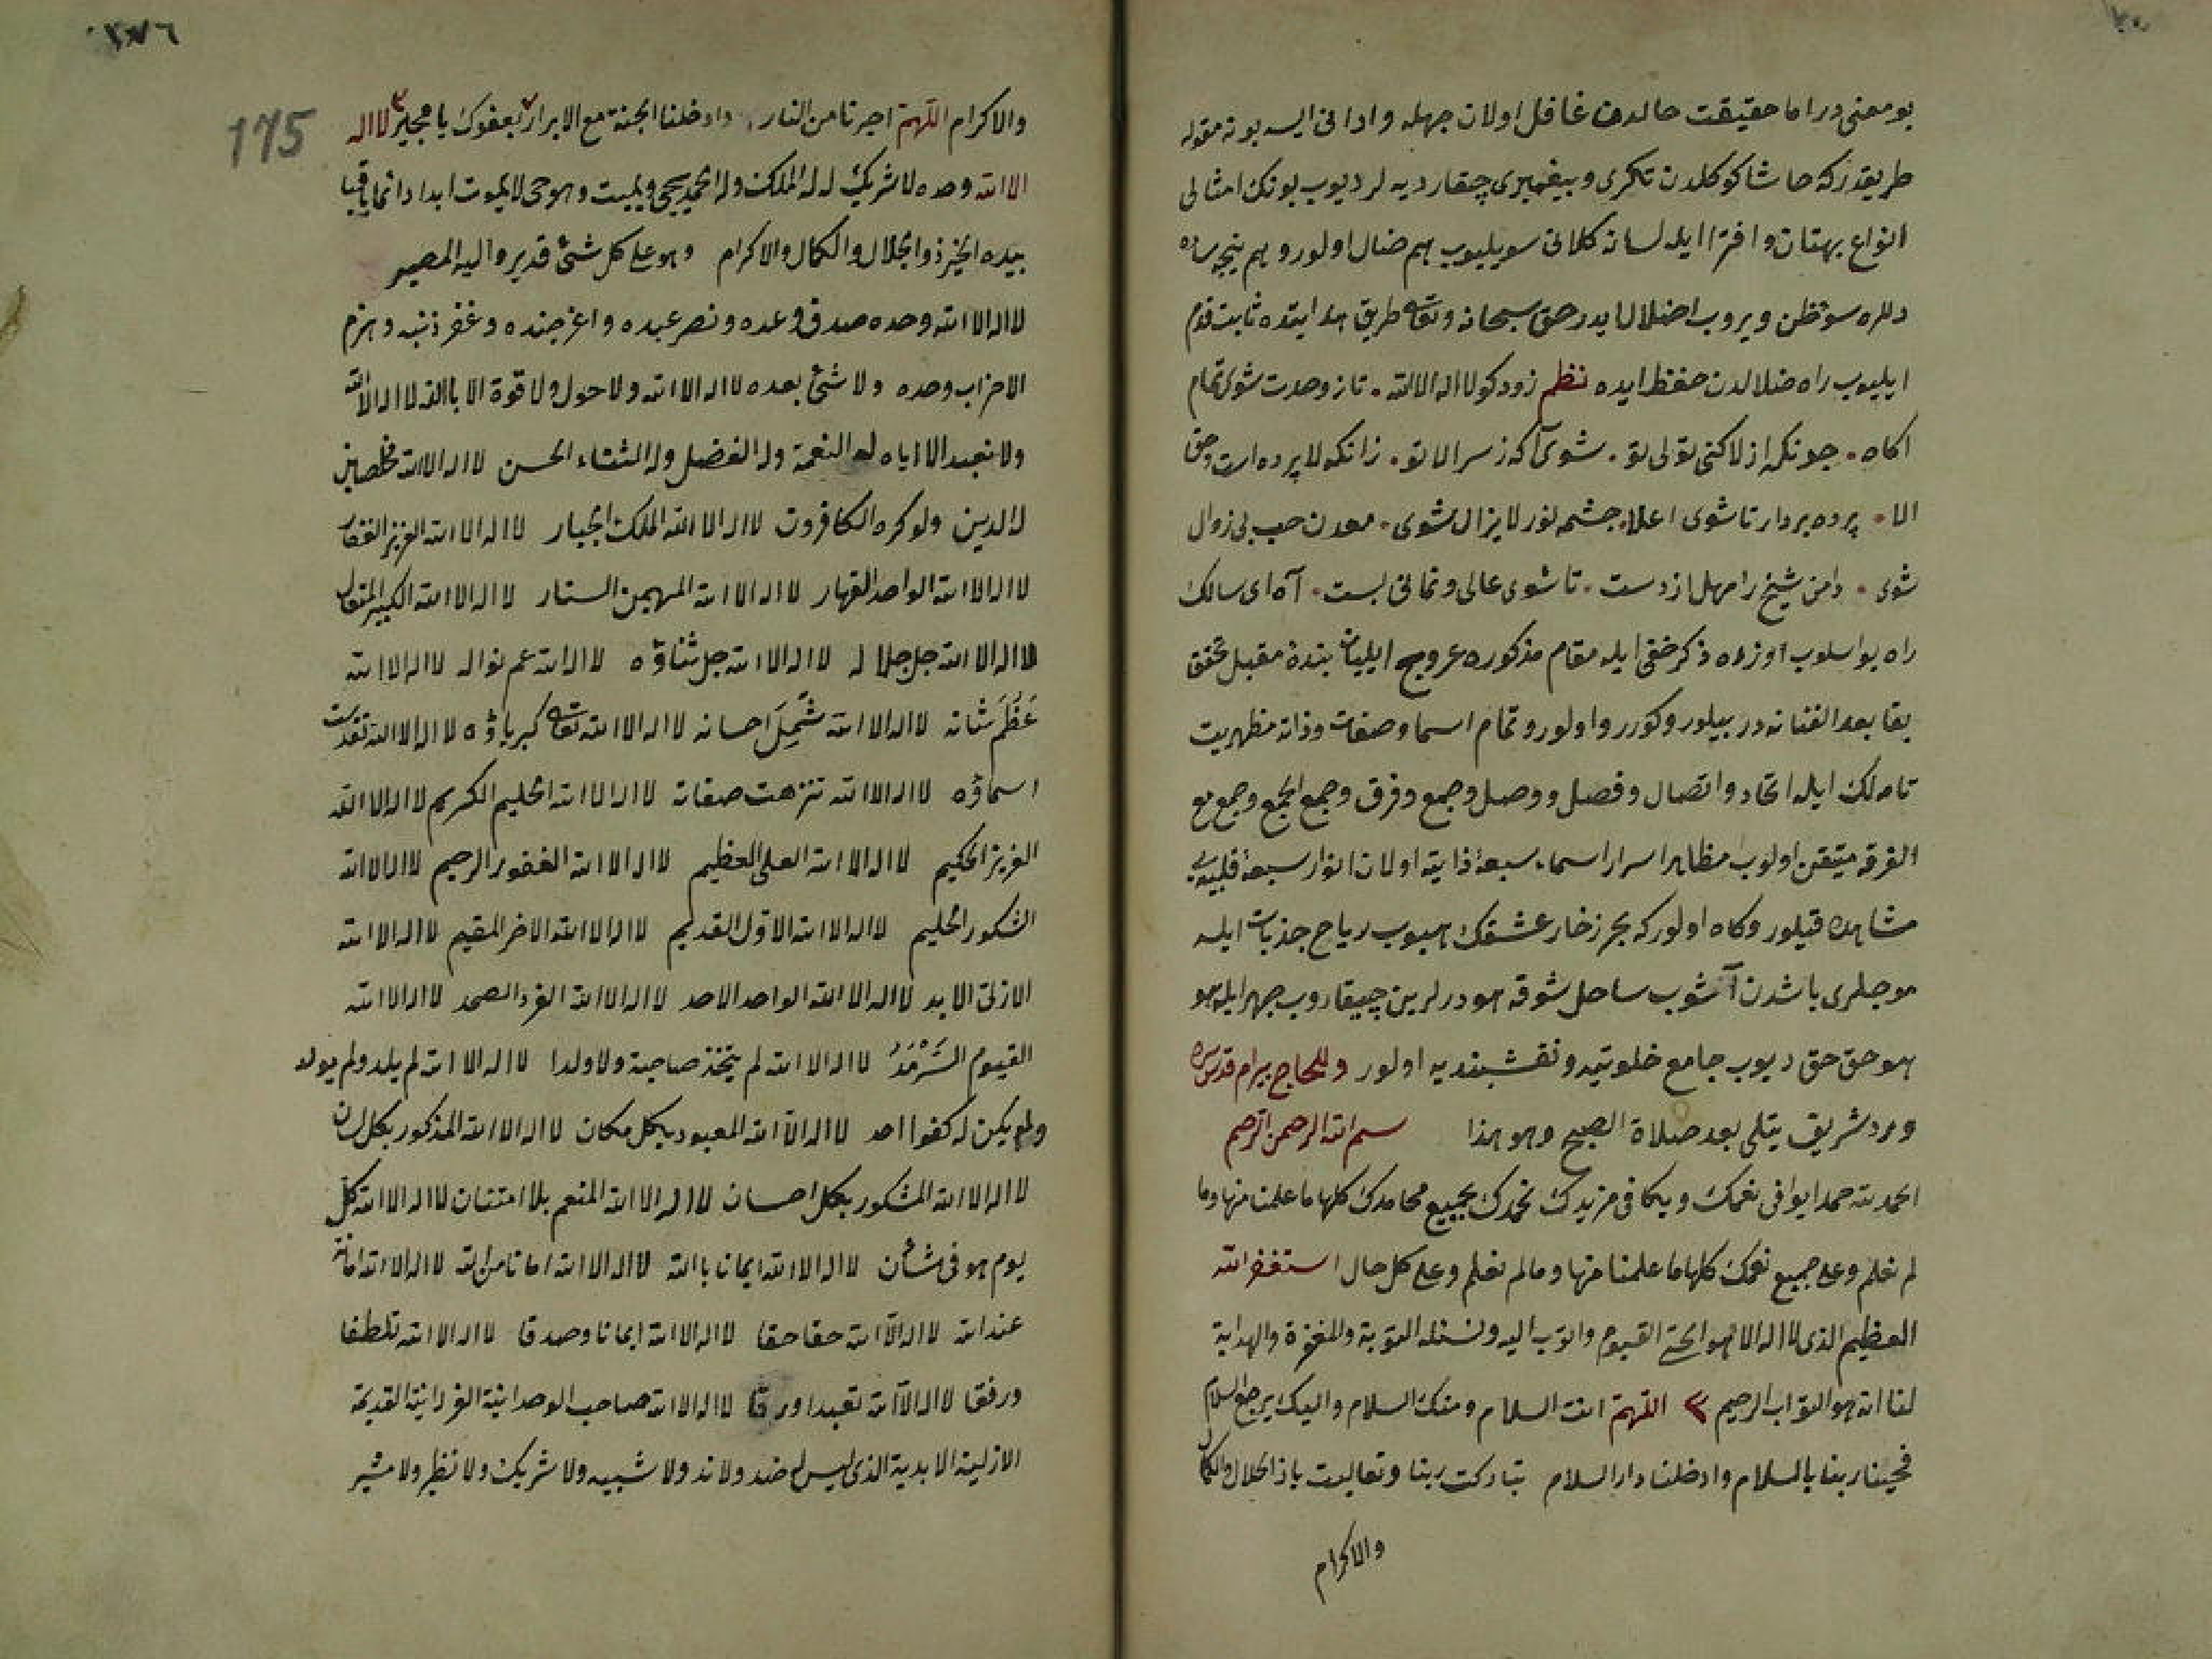 بو معنی در اما حقیقت حالدن غافل اولان جهله و ادانی ایسه بو نه مقوله
طریقدر که حاشا کوکلدن تکری و پیغمبری چقار دیه لر دیوب بونک امثالی
انواع بهتان و افترا ایله لسانه کلانی سویلیوب هم ضال اولور و هم نیجه ساده
دللره سوء ظن ویروب اضلال ایدر حق سبحانه وتعالی طریق هدایتده ثابت قدم
ایلیوب راه ضلالدن حفظ ایده نظم زود کو لا اله الا الله . تا ز وحدت شوی تمام
اکاه . چونکه از لا کنی تولی تو . شوی آکه ز سر الا تو . زانکه لا پرده است وحق
الا . پرده بردار تا شوی اعلا . چشمه نور لا یزال شوی . معدن حب بی زوال
شوی . دامن شیخ را مهل از دست . تا شوی عالی ونمانی پست . آه ای سالک
راه بو اسلوب اوزره ذکر خفی ایله مقام مذکوره عروج ایلیان بندهٔ مقبل تحقق
بقا بعد الفنا نه در بیلور و کورر و اولور و تمام اسما وصفات وذاته مظهریت
تامه لک ایله اتحاد واتصال وفصل ووصل وجمع وفرق وجمع الجمع وجمع مع
الفرقه متیقن اولوب مظاهر اسرار اسماء سبعهٔ ذاتیه اولان انوار سبعهٔ قلبیه یی
مشاهده قیلور وکاه اولور که بحر زخار عشقک هبوب ریاح جذبات ایله
موجلری باشدن آشوب ساحل شوقه هو درلرین چیقاروب جهر ایله هو
هو حق حق دیوب جامع خلوتیه و نقشبندیه اولور وللحاج بیرام قدس سره
ورد شریف یتلی بعد صلاة الصبح وهو هذا بسم الله الرحمن الرحیم
الحمد لله حمدا یوافی نعمک ویکافی مزیدک نحمدک بجمیع محامدک کلها ما علمنا منها وما
لم نعلم وعلی جمیع نعمک کلها ما علمنا منها وما لم نعلم وعلی کل حال استغفر الله
العظیم الذی لا اله الا هو الحی القیوم واتوب الیه ونسئله التوبة والمغفرة والهدایة
لنا انه هو التواب الرحیم ٣ اللهم انت السلام ومنک السلام والیک یرجع السلام
فحینا ربنا بالسلام وادخلنا دار السلام تبارکت ربنا وتعالیت یا ذا الجلال والکمال
والاکرام
175
والاکرام اللهم اجرنا من النار وادخلنا الجنة مع الابرار بعفوک یا مجیر ٣ لا اله
الا الله وحده لا شریک له له الملک وله الحمد یحیی ویمیت وهو حی لا یموت ابدا دائما باقیا
بیده الخیر ذو الجلال والکمال والاکرام وهو علی کل شئ قدیر والیه المصیر
لا اله الا الله وحده صدق وعده ونصر عبده واعز جنده وغفر ذنبه وهزم
الاحزاب وحده ولا شئ بعده لا اله الا الله ولا حول ولا قوة الا بالله لا اله الا الله
ولا نعبد الا ایاه له النعمة وله الفضل وله الثناء الحسن لا اله الا الله مخلصین
له الدین ولو کره الکافرون لا اله الا الله الملک الجبار لا اله الا الله العزیز الغفار
لا اله الا الله الواحد القهار لا اله الا الله المهیمن الستار لا اله الا الله الکبیر المتعال
لا اله الا الله جل جلاله لا اله الا الله جل ثناؤه لا اله الا الله عم نواله لا اله الا الله
عظم شانه لا اله الا الله شمل احسانه لا اله الا الله تعالی کبریاؤه لا اله الا الله تقدست
اسماؤه لا اله الا الله تنزهت صفاته لا اله الا الله الحلیم الکریم لا اله الا الله
العزیز الحکیم لا اله الا الله العلی العظیم لا اله الا الله الغفور الرحیم لا اله الا الله
الشکور الحلیم لا اله الا الله الاول القدیم لا اله الا الله الاخر المقیم لا اله الا الله
الازلی الابد لا اله الا الله الواحد الاحد لا اله الا الله الفرد الصمد لا اله الا الله
القیوم السرمد لا اله الا الله لم یتخذ صاحبة ولا ولدا لا اله الا الله لم یلد ولم یولد
ولم یکن له کفوا احد لا اله الا الله المعبود بکل مکان لا اله الا الله المذکور بکل لسان
لا اله الا الله المشکور بکل احسان لا اله الا الله المنعم بلا امتنان لا اله الا الله کل
یوم هو فی شأن لا اله الا الله ایمانا بالله لا اله الا الله امانا من الله لا اله الا الله امانة
عند الله لا اله الا الله حقا حقا لا اله الا الله ایمانا وصدقا لا اله الا الله تلطفا
ورفقا لا اله الا الله تعبدا ورقا لا اله الا الله صاحب الوحدانیة الفردانیة القدیمة
الازلیة الابدیة الذی لیس له ضد ولا ند ولا شبیه ولا شریک ولا نظیر ولا مشیر